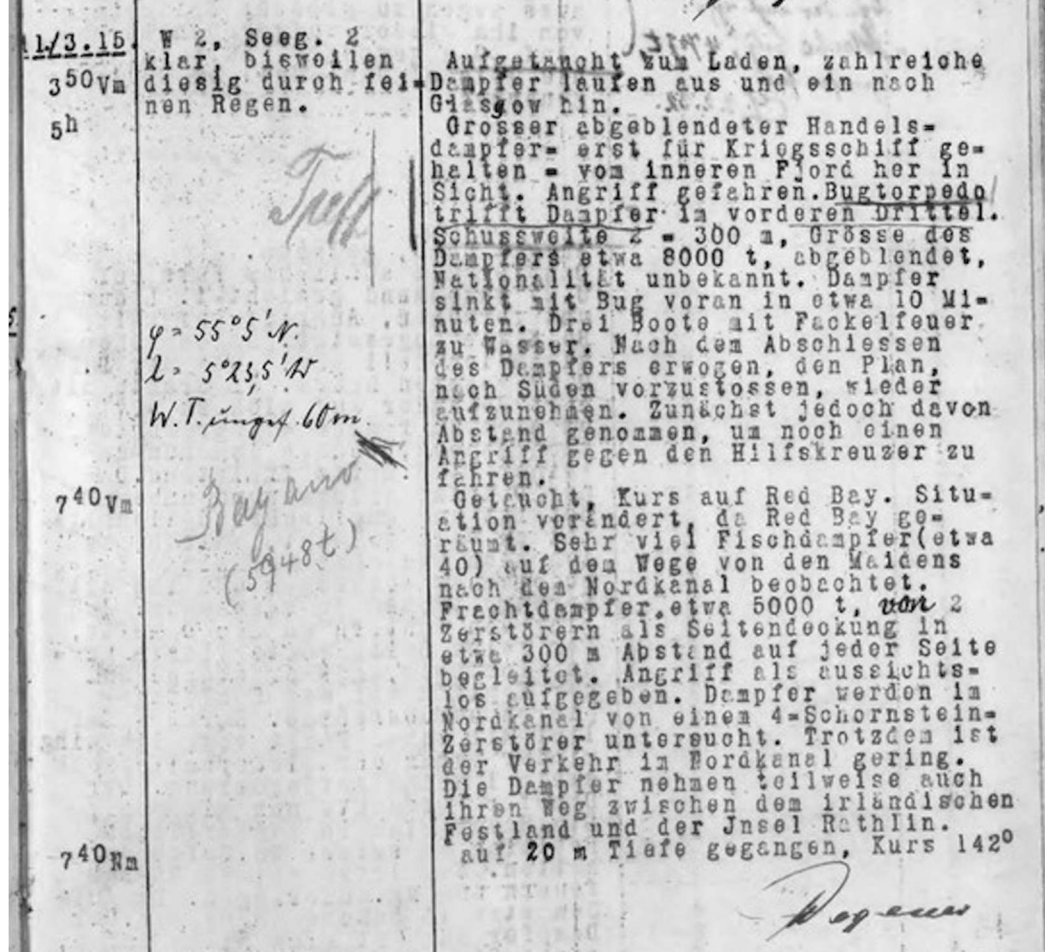 11/3.15.
W 2, Seeg. 2
klar, bisweilen
3 50 Vm diesig durch fei=
nen Regen.
5h
Aufgetaucht zum Laden, zahlreiche
Dampfer laufen aus und ein nach
Glasgow hin.
Grosser abgeblendeter Handels=
dampfer= erst für Kriegsschiff ge=
halten = vom inneren Fjord her in
Sicht. Angriff gefahren. Bugtorpedo
trifft Dampfer im vorderen Drittel.
Schussweite 2 = 300 m, Grösse des
Dampfers etwa 8000 t, abgeblendet,
Nationalität unbekannt. Dampfer
sinkt mit Bug voran in etwa 10 Mi=
nuten. Drei Boote mit Fackelfeuer
zu Wasser. Nach dem Abschiessen
des Dampfers erwogen, den Plan,
nach Süden vorzustossen, wieder
aufzunehmen. Zunächst jedoch davon
Abstand genommen, um noch einen
Angriff gegen den Hilfskreuzer zu
fahren.
Treff
φ = 55° 5' N.
λ = 5° 23,5' W
W.T. ungef. 60 m.
Bayano
(5948t)
7 40 Vm
Getaucht, Kurs auf Red Bay. Situ=
ation verändert, da Red Bay ge=
räumt. Sehr viel Fischdampfer(etwa
40) auf dem Wege von den Maidens
nach dem Nordkanal beobachtet.
Frachtdampfer, etwa 5000 t, von 2
Zerstörern als Seitendeckung in
etwa 300 m Abstand auf jeder Seite
begleitet. Angriff als aussichts=
los aufgegeben. Dampfer werden im
Nordkanal von einem 4=Schornstein=
Zerstörer untersucht. Trotzdem ist
der Verkehr im Nordkanal gering.
Die Dampfer nehmen teilweise auch
ihren Weg zwischen dem irländischen
Festland und der Jnsel Rathlin.
7 40 Nm auf 20 m Tiefe gegangen, Kurs 142°
Wegener